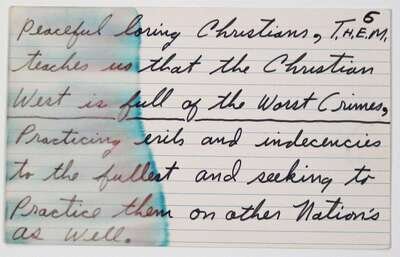 5
Peaceful loving Christians, T.H.E.M.
teaches us that the Christian
West is full of the Worst Crimes,
Practicing evils and indecencies
to the fullest and seeking to
Practice them on other Nation's
as well.